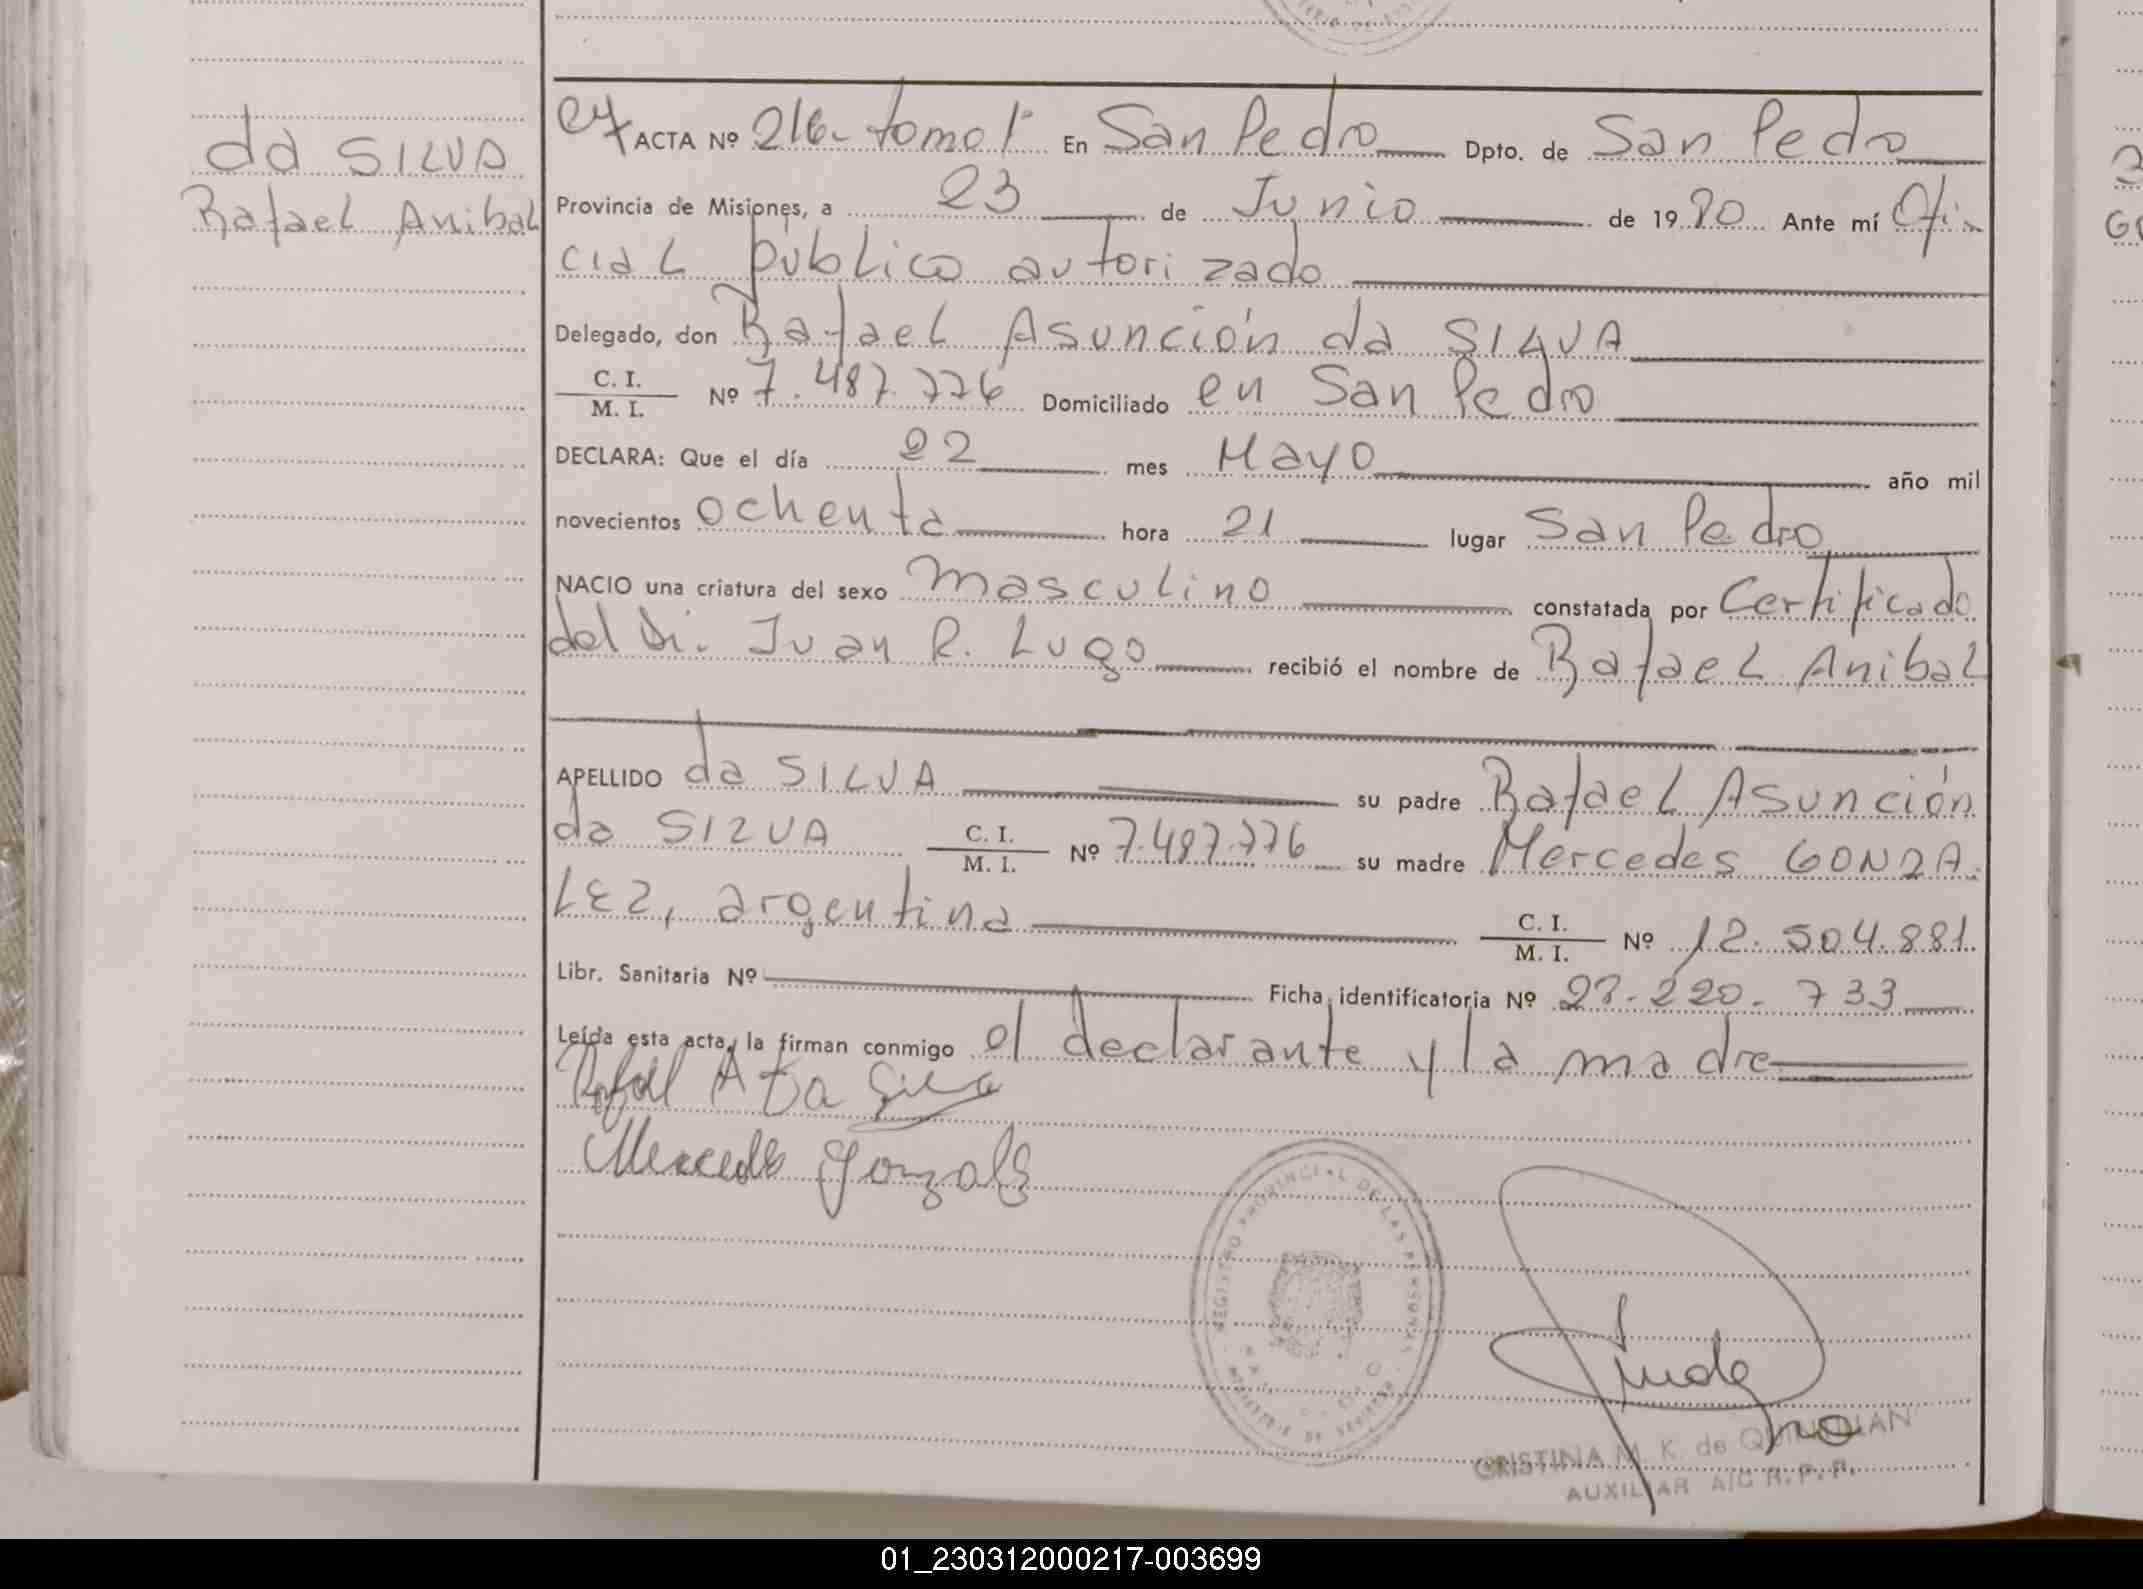 da SILVA
Rafael Anibal
ACTA Nº 216- tomo 1º En San Pedro Dpto. de San Pedro
Provincia de Misiones, a 23 de Junio de 1980 Ante mí Ofi-
cial público autorizado
Delegado, don Rafael Asunción da SILVA
C. I.
M. I. Nº 7.487.776 Domiciliado en San Pedro
DECLARA: Que el día 22 mes Mayo año mil
novecientos ochenta hora 21 lugar San Pedro
NACIO una criatura del sexo masculino constatada por Certificado
del Dr. Juan R. Lugo recibió el nombre de Rafael Anibal
APELLIDO da SILVA su padre Rafael Asunción
da SILVA C. I.
M. I. Nº 7.487.776 su madre Mercedes GONZA-
LEZ, argentina C. I.
M. I. Nº 12.504.881.
Libr. Sanitaria Nº Ficha identificatoria Nº 28-220-733
Leída esta acta, la firman conmigo el declarante y la madre
Rafael A Da Silva
Mercedes Gonzalez
REGISTRO PROVINCIAL DE LAS PERSONAS
MINISTERIO DE
CRISTINA M. K. de
AUXILIAR A/C R. P. P.
01_230312000217-003699